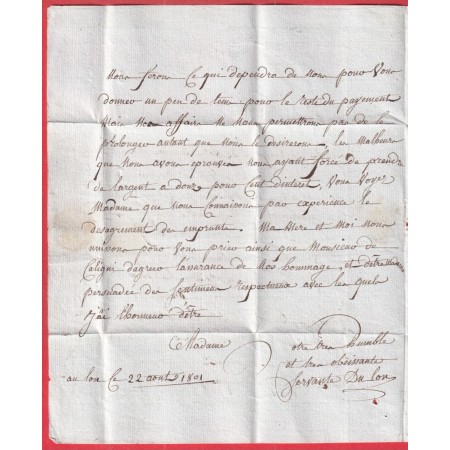 Nous ferons ce qui dependra de nous pour vous
donner un peu de tems pour le reste du payement
Mais Nos affaire ne Nous permettrons pas de le
prolonger autant que Nous le desirerons, les Malheurs
que Nous avons eprouvés nous ayant forcé de prendre
de l'argent a douze pour Cent d'interet, Vous Voyez
Madame que nous Connaissons par experience le
desagrement des emprunts. Ma Mere et Moi nous
unissons pour vous prier ainsi que Monsieur de
Caligni d'agreer l'assurance de Nos hommage et d'être
persuadée des sentimens respectueux avec les quels
j'ai l'honneur d'être
Madame
otre tres humble
et tres obeissante
au lon ce 22 aout 1801
Servante Du lon